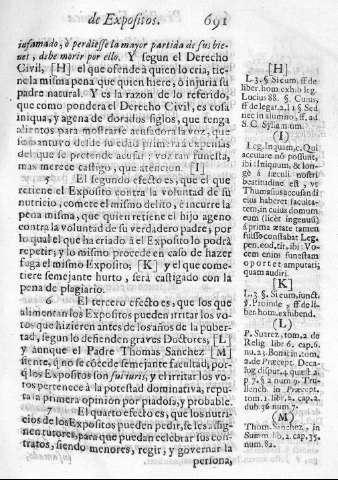 de Expositos. 691
infamado, ò perdiesse la mayor partida de sus bie-
nes, debe morir por ello. Y segun el Derecho
Civil, [H] el que ofende à quien lo cria, tie-
ne la misma pena que quien hiere, ò injuria su
padre natural. Y es la razon de lo referido,
que como pondera el Derecho Civil, es cosa
iniqua, y agena de dorados siglos, que tenga
alientos para mostrarse acusadora la voz, que
lo amantuvo desde su edad primera à expensas
del que se pretende acusar: voz tan funesta,
mas merece castigo, que atencion. [I]
El segundo efecto es, que el que
retiene el Exposito contra la voluntad de su
nutricio, comete el mismo delito, è incurre la
pena misma, que quien retiene el hijo ageno
contra la voluntad de su verdadero padre; por
lo qual el que ha criado à el Exposito lo podrà
repetir; y lo mismo procede en caso de hazer
fuga el mismo Exposito; [K] y el que come-
tiere semejante hurto, serà castigado con la
pena de plagiario.
6 El tercero efecto es, que los que
alimentan los Expositos pueden irritar los vo-
tos que hizieren antes de los años de la puber-
tad, segun lo defienden graves Doctores, [L]
y aunque el Padre Thomas Sanchez [M]
siente, que no se concede semejante facultad, por-
q los Expositos son sui iuris, y el irritar los vo-
tos pertenece à la potestad dominativa, repu-
ta la primera opinion por piadosa, y probable.
7 El quarto efecto es, que los nutri-
cios de los Expositos pueden pedir, se les assig-
nen tutores, para que puedan celebrar sus con-
tratos, siendo menores, regir, y governar la
persona,
[H]
L. 3. §. Sicum, ff. de
liber. hom. exhib. leg.
Lucius 88. §. Cuius,
ff. de legat. 2. l. 1. §. Sed
nec in alumno, ff. ad
S. C. Sylla num.
(I)
Leg. Iniquam, c. Qui
accusare nò possunt,
ibi: Iniquum, & longè
à sæculi nostri
beatitudine est, ut
Thematusa cuius sti
eius haberet faculta-
tem, in cuius domo cum
eum (licèt ingenuū)
à prima ætate tamen
fuisse constabat Leg.
pen. eod. tit. ibi: Vo-
cem enim funestam
oportet amputati;
quam audiri.
[K]
L. 3. §. Sicum, iunct.
§. Proinde, ff. de li-
ber. hom. exhibend.
(L)
P. Suarez, tom. 2. de
Relig. lib. 6. cap. 6.
nu. 23. Bonit. in tom.
2. de Præcept. Deca-
log. disput. 4. quæst. 2.
p. 7. §. 2. num. 9. Tru-
llench. in Præcept.
tom. 1. lib. 2. cap. 2.
dub. 36. num. 7.
(M)
Thom. Sanchez, in
Summ. lib. 2. cap. 35.
num. 82.